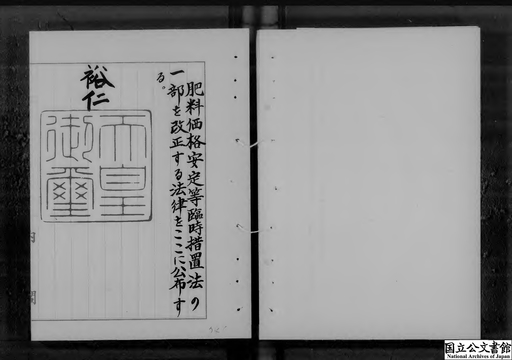 肥料価格安定等臨時措置法の
一部を改正する法律をここに公布す
る。
裕仁
天皇
御璽
国立公文書館
National Archives of Japan